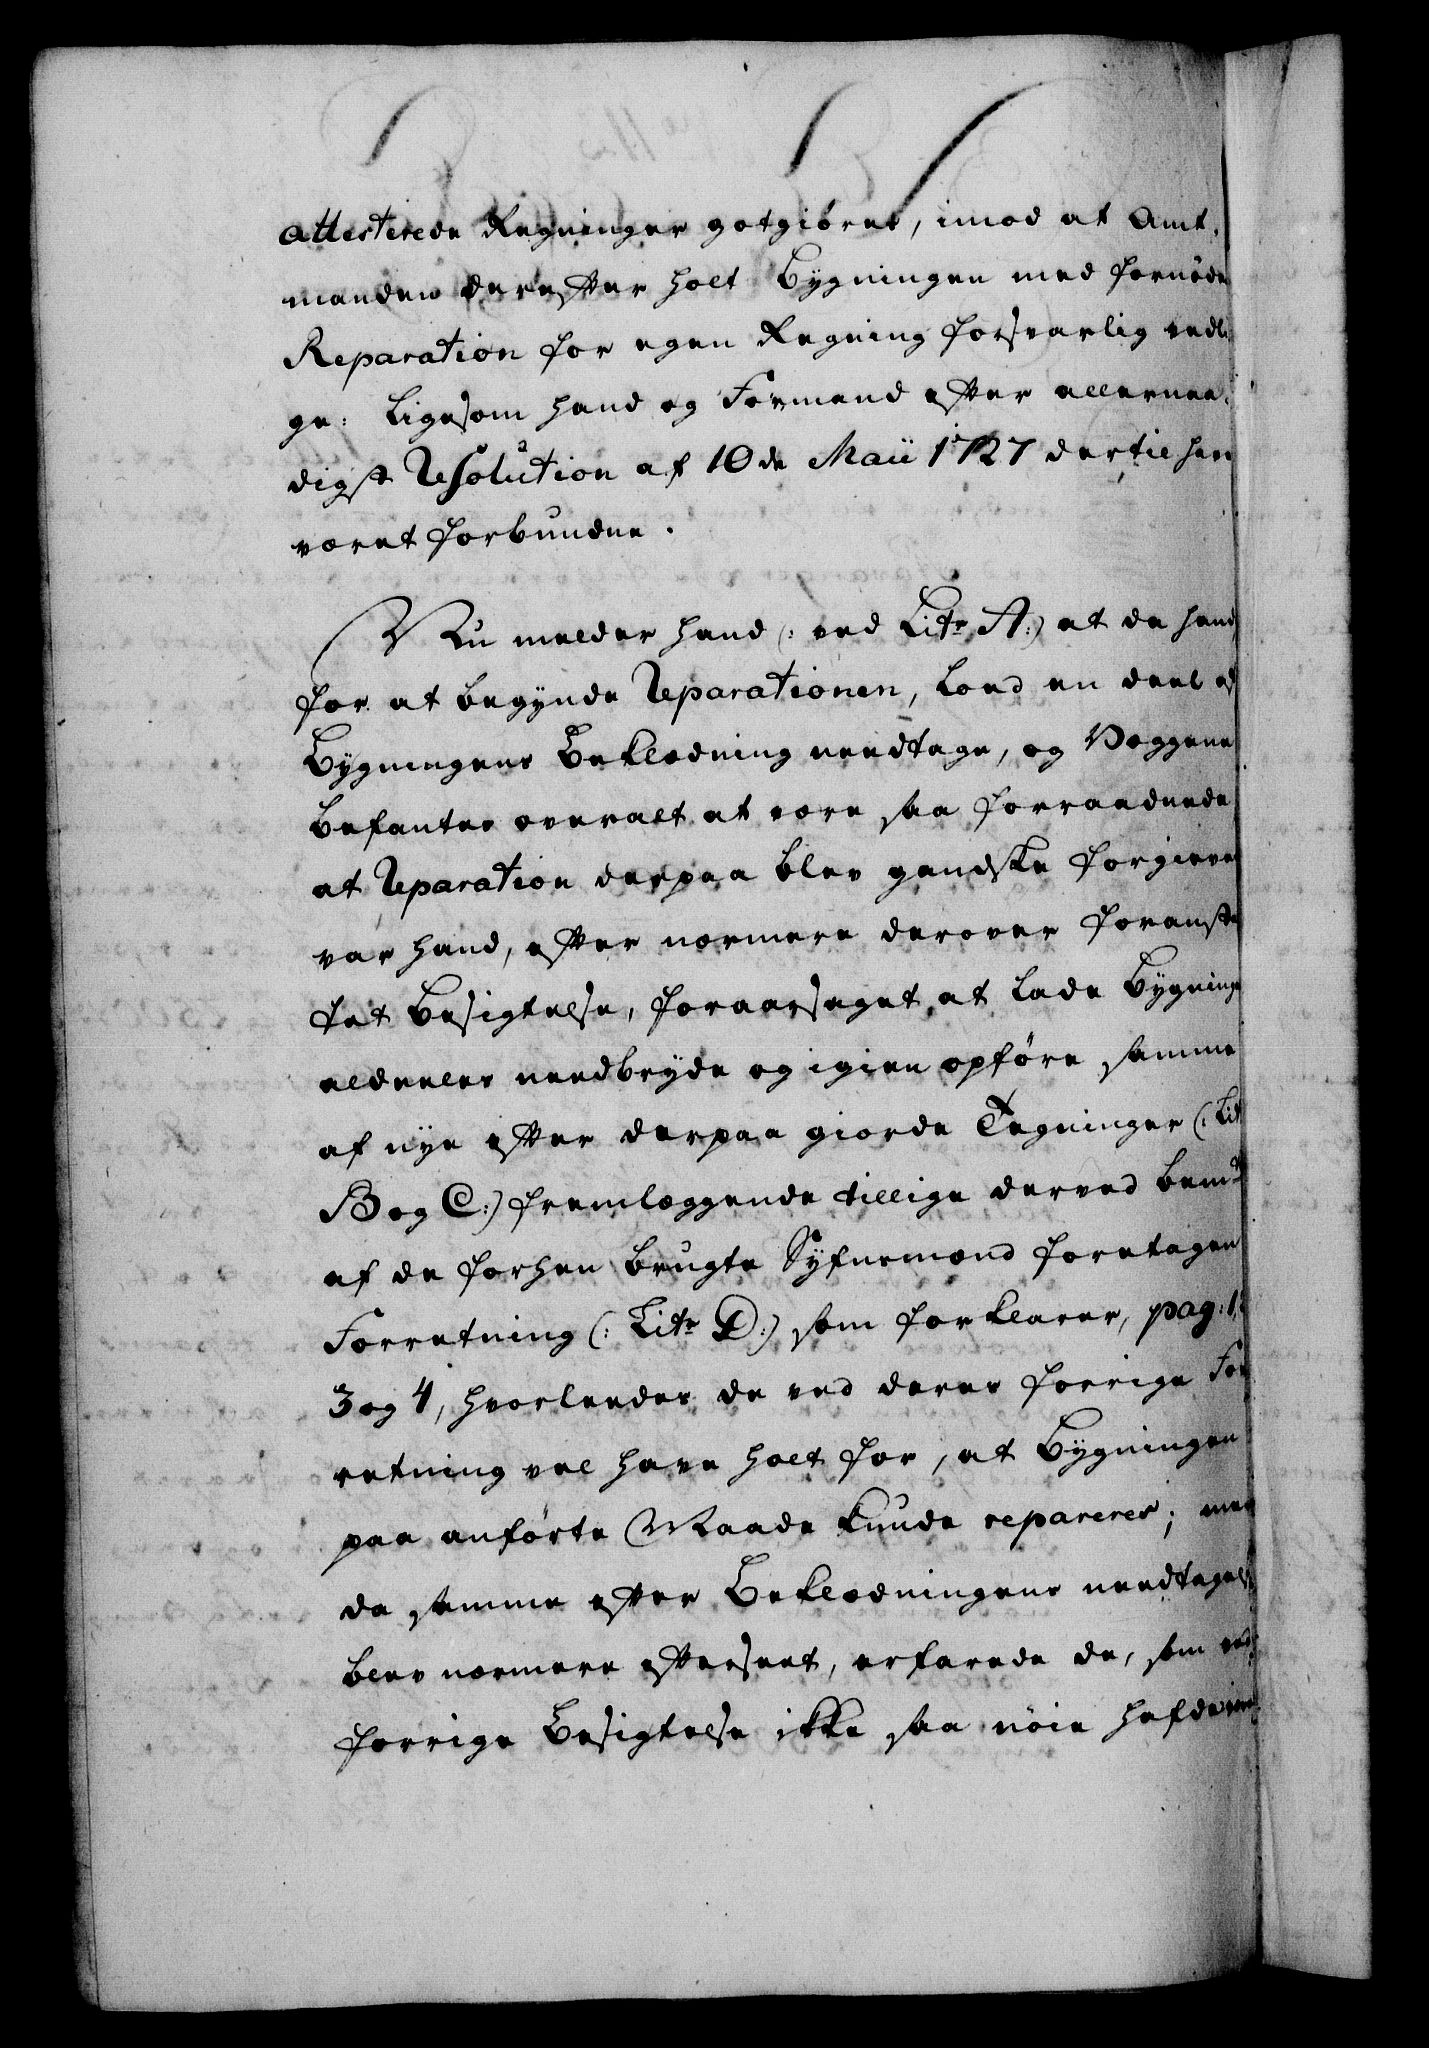 attesterede Regninger gotgiöres, imod at Amt,
manden derefter holt Bygningen med fornöde
Reparation for egen Regning forsvarlig vedli
ge: Ligesom hand og Formænd efter allernaa,
digst Resolution af 10de Maii 1727 dertil har
været forbundne.
Nu melder hand (: ved Litr A:) at da hand
for at begynde Reparationen, loed en deel af
Bygningens Beklædning needtage, og Væggene
befantes overalt at være saa forraadnede
at Reparation derpaa blev gandske forgieves
var hand, efter nærmere derover foranstal
tet Besigtelse, foraarsaget at lade Bygningen
aldeeles needbryde og igien opföre samme
af nye efter derpaa giorde Tegninger (: Litr
B og C:) fremlæggende tillige derved bemte
af de forhen brugte Syfnsmænd foretagen
Forretning (: Litr D:) som forklarer, pag: 1,
3 og 4, hvorleedes de ved deres forrige For
retning vel have holt for, at Bygningen
paa anförte Maade kunde repareres; men
da samme efter Beklædningens needtagelse
blev nærmere efterseet, erfarede de, som ved
forrige Besigtelse ikke saa nöie hafde